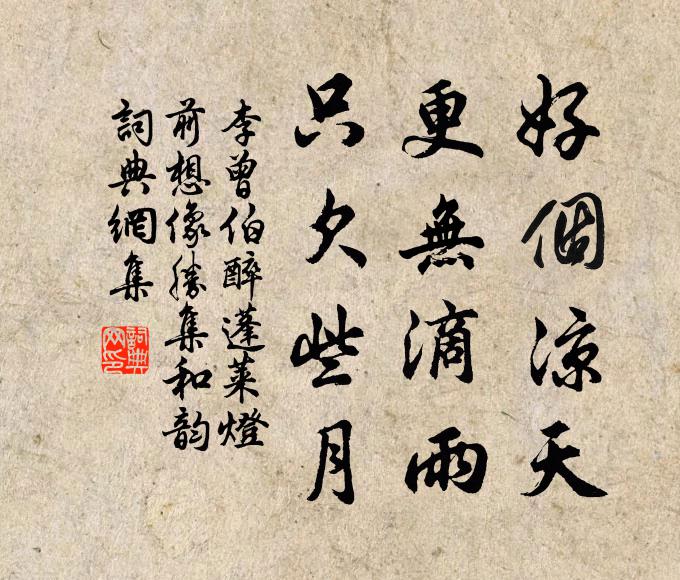 好個涼天
更無滴雨
只欠些月
李曾伯醉蓬萊燈
前想像勝集和韵
詞典網集
詞典
网印